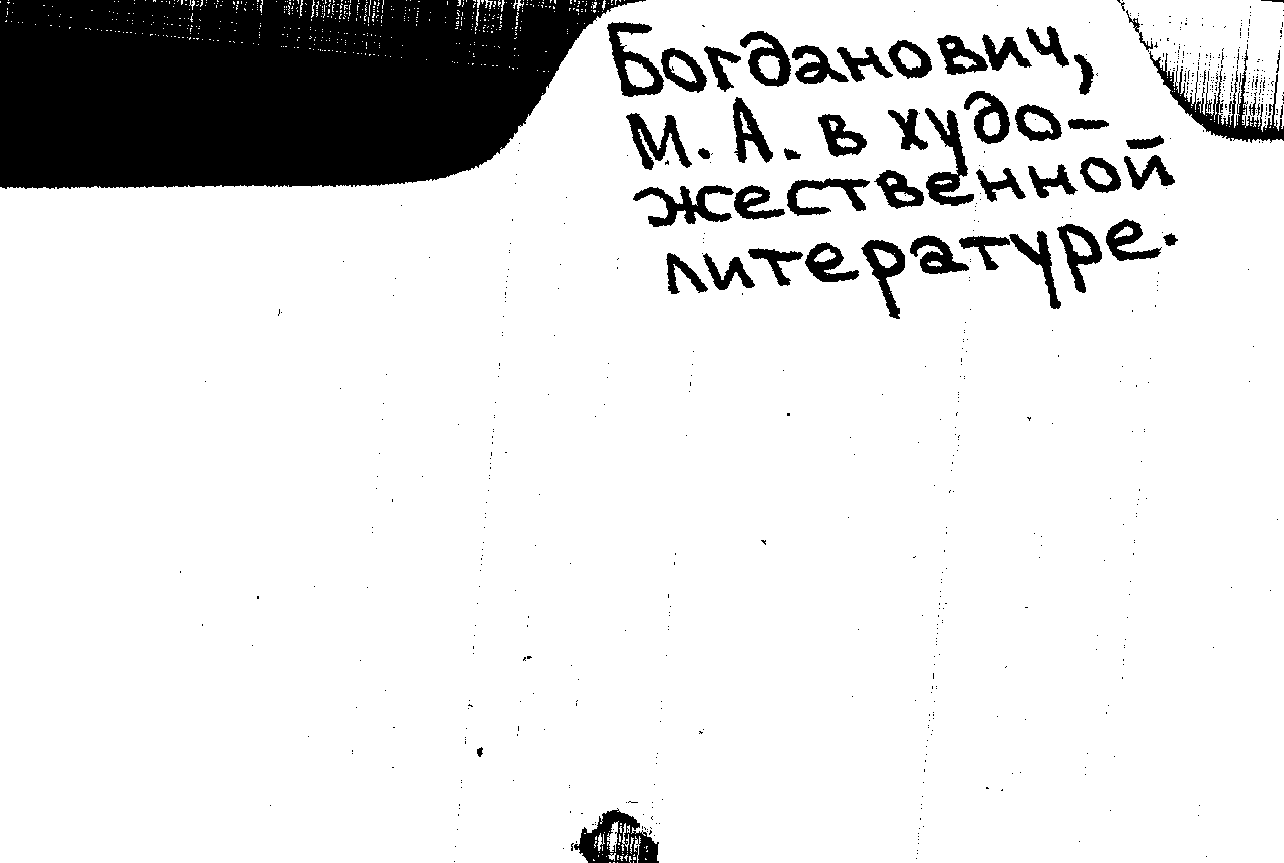 Богданович,
М. А. в худо-
жественной
литературе.